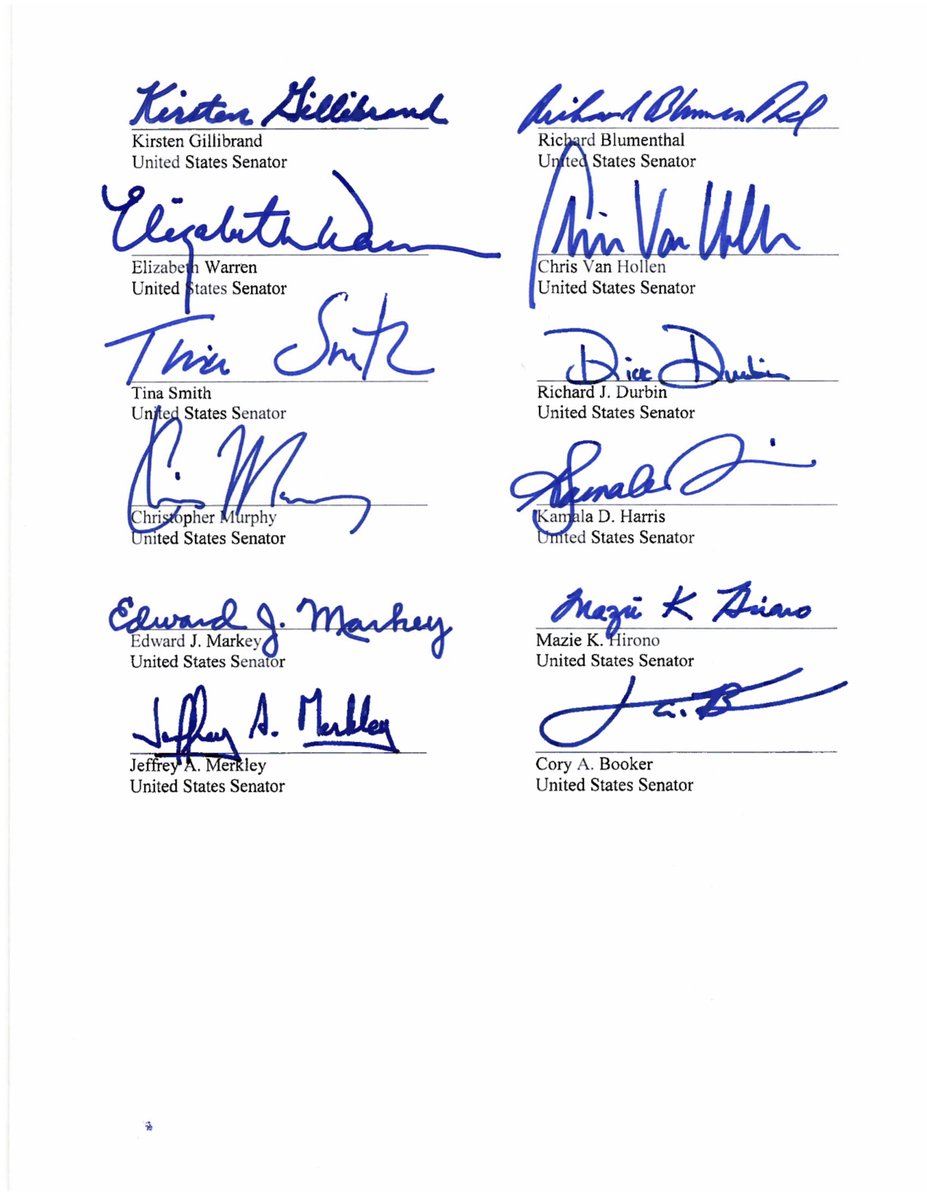 Kirsten Gillibrand
Kirsten Gillibrand
United States Senator
Richard Blumenthal
Richard Blumenthal
United States Senator
Elizabeth Warren
Elizabeth Warren
United States Senator
Chris Van Hollen
Chris Van Hollen
United States Senator
Tina Smith
Tina Smith
United States Senator
Dick Durbin
Richard J. Durbin
United States Senator
Chris Murphy
Christopher Murphy
United States Senator
Kamala
Kamala D. Harris
United States Senator
Edward J. Markey
Edward J. Markey
United States Senator
Mazie K Hirono
Mazie K. Hirono
United States Senator
Jeffrey A. Merkley
Jeffrey A. Merkley
United States Senator
Cory A. Booker
United States Senator